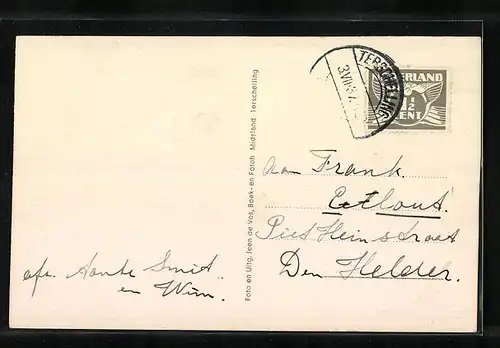 TERSCHELLING
NEDERLAND
1½
CENT
Foto en Uitg. Iwen de Vos, Boek- en Fotoh Midsland Terschelling
Aan Frank.
Piet Heinstraat
Den Helder.
afz. Aante Smit.
en Wim.